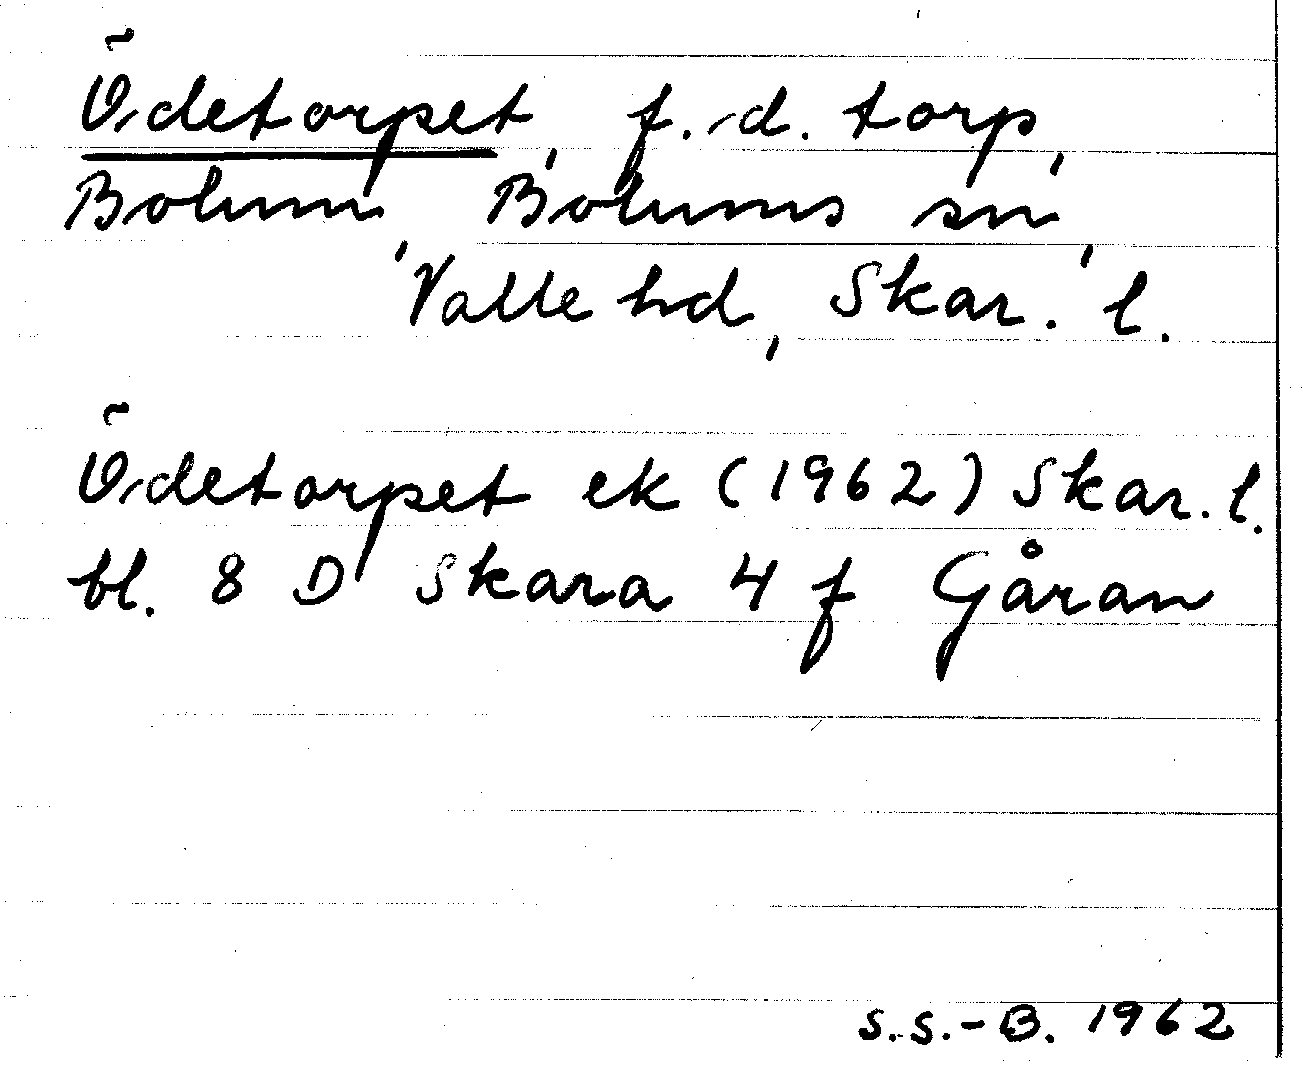 Ödetorpet, f.d. torp,
Bolum, Bolums sn,
Valle hd, Skar. l.
Ödetorpet ek (1962) Skar. l.
bl. 8 D Skara 4 f Gåran
S.S.-B. 1962